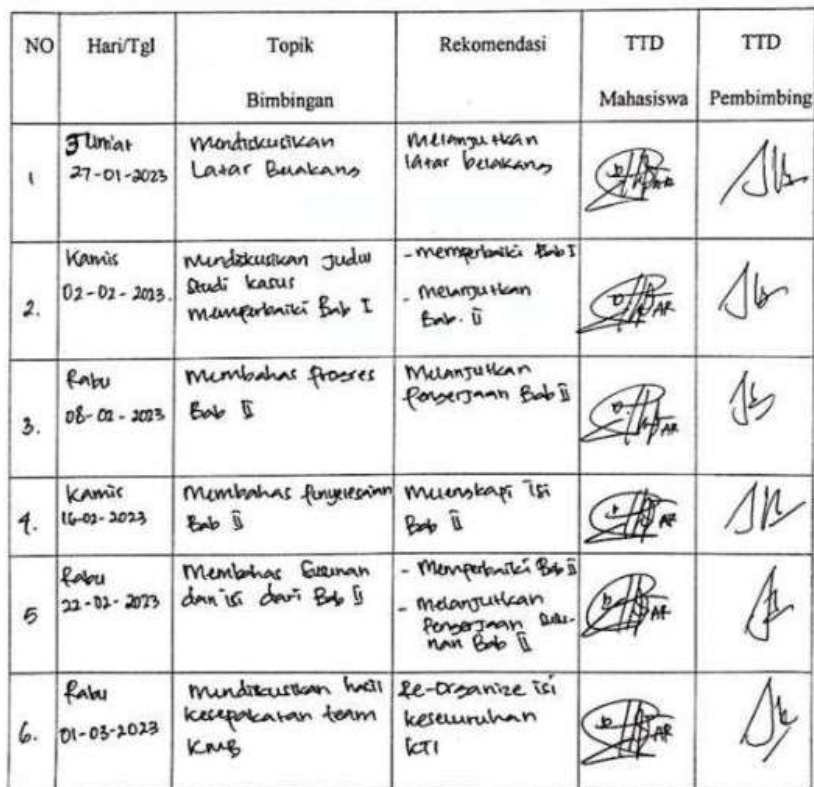 NO Hari/Tgl Topik Bimbingan Rekomendasi TTD Mahasiswa TTD Pembimbing
1 Jum'at
27-01-2023
Mendiskusikan
Latar Belakang
Melanjutkan
latar belakang
AR
2. Kamis
02-02-2023.
Mendiskusikan judul
Studi kasus
memperbaiki Bab I
- memperbaiki Bab I
- melanjutkan
Bab. II
AR
3. Rabu
08-02-2023
Membahas Progres
Bab II
Melanjutkan
Pengerjaan Bab II
AR
4. Kamis
16-02-2023
Membahas Penyelesaian
Bab II
Melengkapi isi
Bab II
AR
5 Rabu
22-02-2023
Membahas Susunan
dan isi dari Bab II
- Memperbaiki Bab II
- Melanjutkan
Pengerjaan Susu-
nan Bab II
AR
6. Rabu
01-03-2023
Mendiskusikan hasil
kesepakatan team
KMB
Re-Organize isi
keseluruhan
KTI
AR